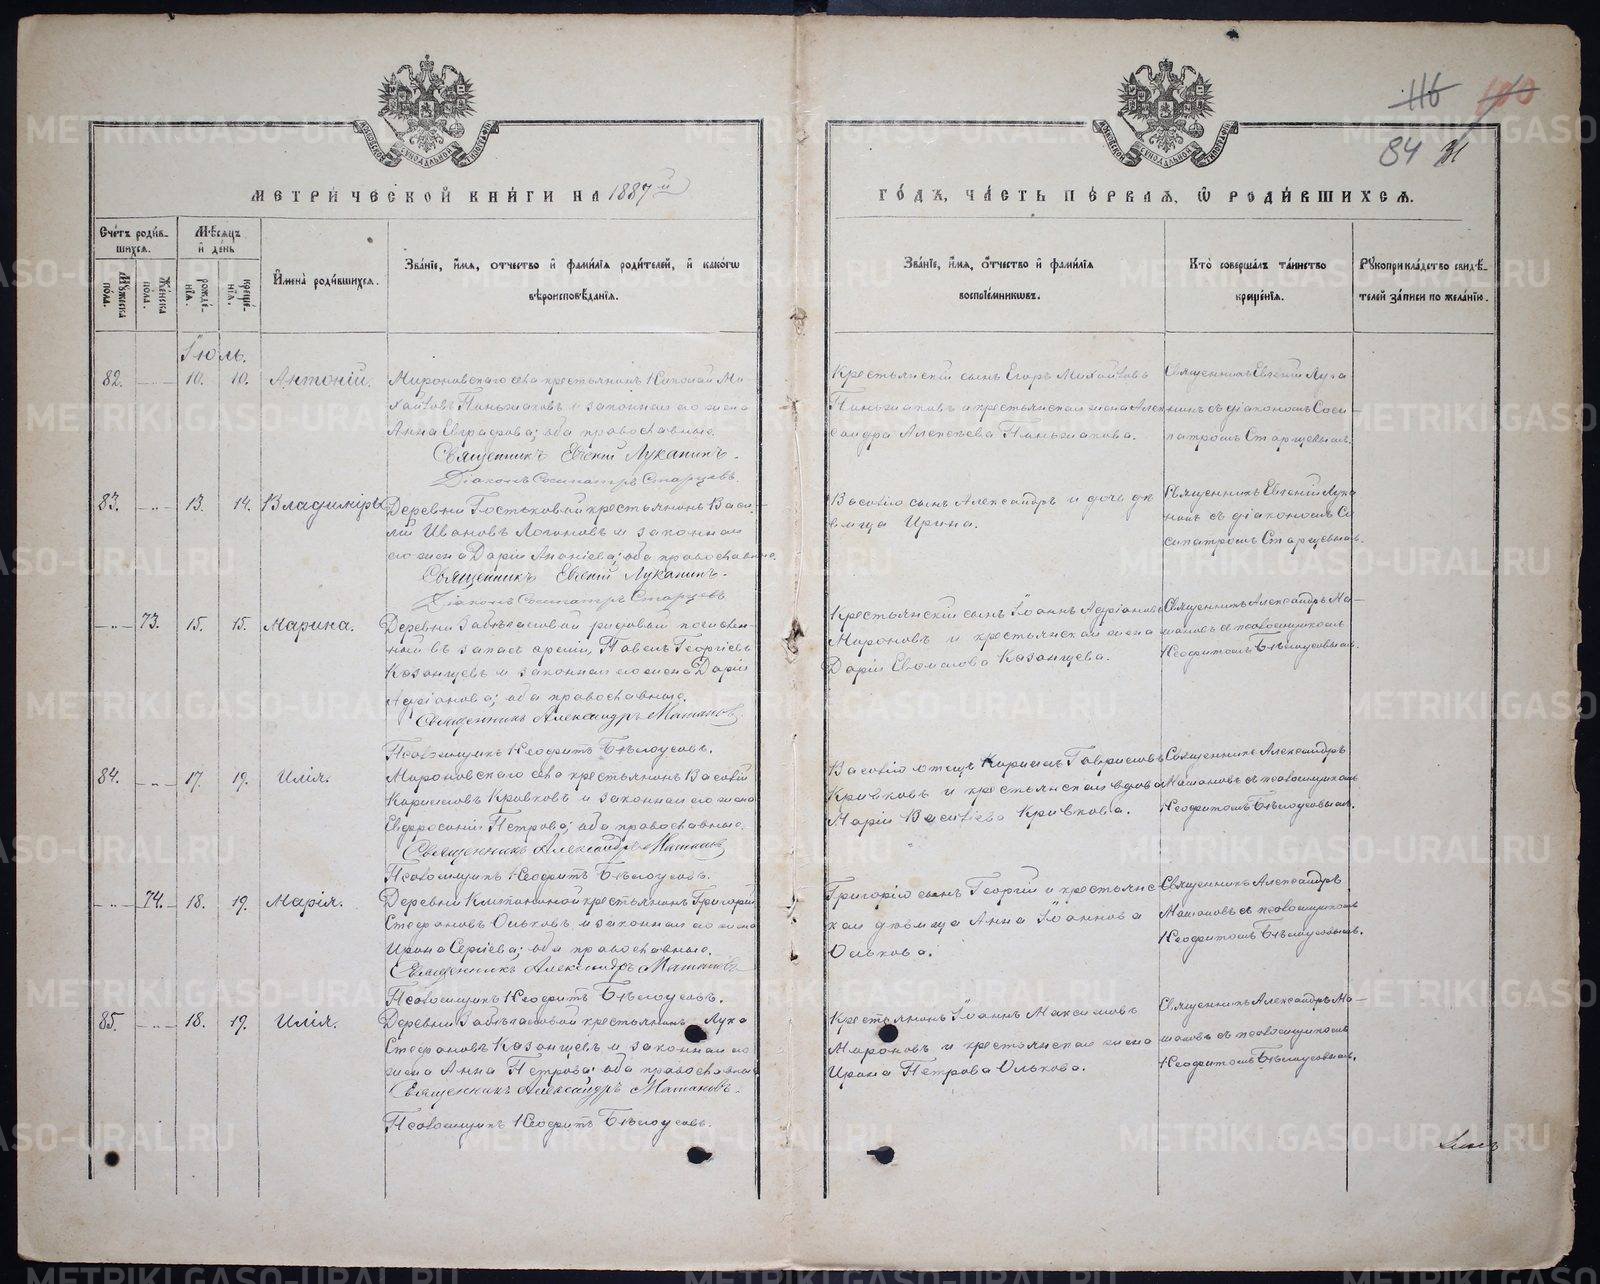 116 100
84 31
МЕТРИЧЕСКОЙ КНИГИ НА 1887 й
ГОДЪ, ЧАСТЬ ПЕРВАЯ, Ѡ РОДИВШИХСЯ.
Счетъ родившихся.
Мужеска пола.
Женска пола.
Мѣсяцъ и день
рожденія.
крещенія.
Имена родившихся.
Званіе, имя, отчество и фамилія родителей, и какогѡ
вѣроисповѣданія.
Званіе, имя, отчество и фамилія
воспріемниковъ.
Кто совершалъ таинство
крещенія.
Рукоприкладство свидѣ-
телей записи по желанію.
Іюль.
82. 10. 10. Антоній.
Мироновскаго села крестьянинъ Николай Ми-
хайловъ Паньшаковъ и законная его жена
Анна Евграфова; оба православные.
Священникъ Евгеній Луканинъ.
Діаконъ Сосипатръ Старцевъ.
Крестьянскій сынъ Егоръ Михайловъ
Паньшаковъ и крестьянская жена Алек-
сандра Алексѣева Паньшакова.
Священникъ Евгеній Лука
нинъ съ діакономъ Соси-
патромъ Старцевымъ.
83. 13. 14. Владиміръ
Деревни Гостьковой крестьянинъ Васи-
лій Ивановъ Логиновъ и законная
его жена Дарія Ананіева; оба православные.
Священникъ Евгеній Луканинъ.
Діаконъ Сосипатръ Старцевъ
Василія сынъ Александръ и дочь дѣ
вица Ирина.
Священникъ Евгеній Лука
нинъ съ діакономъ Со
сипатромъ Старцевымъ.
73. 15. 15. Марина.
Деревни Забѣгаловой рядовый
въ запасъ арміи, Павелъ Георгіевъ
Казанцевъ и законная его жена Дарія
Адріанова; оба православные.
Священникъ Александръ Маташовъ
Псаломщикъ Неофитъ Бѣлоусовъ.
Крестьянскій сынъ Іоаннъ Адріановъ
Мироновъ и крестьянская жена
Дарія Евлампова Казанцева.
Священникъ Александръ Ма-
ташовъ съ псаломщикомъ
Неофитомъ Бѣлоусовымъ.
84. 17. 19. Илія.
Мироновскаго села крестьянинъ Василій
Карпиловъ Кривковъ и законная его жена
Евфросинія Петрова; оба православные.
Священникъ Александръ Маташовъ
Псаломщикъ Неофитъ Бѣлоусовъ.
Василія отецъ Гавриловъ
Кривковъ и крестьянская вдова
Марія Василіева Кривкова.
Священникъ Александръ
Маташовъ съ псаломщикомъ
Неофитомъ Бѣлоусовымъ.
74. 18. 19. Марія.
Деревни крестьянинъ Григорій
Стефановъ Ольковъ и законная его жена
Ирина Сергіева; оба православные.
Священникъ Александръ Маташовъ
Псаломщикъ Неофитъ Бѣлоусовъ.
Григорія сынъ Георгій и крестьянс
кая дѣвица Анна Іоаннова
Олькова.
Священникъ Александръ
Маташовъ съ псаломщикомъ
Неофитомъ Бѣлоусовымъ.
85. 18. 19. Илія.
Деревни Забѣгаловой крестьянинъ Лука
Стефановъ Казанцевъ и законная его
жена Анна Петрова; оба православные
Священникъ Александръ Маташовъ.
Псаломщикъ Неофитъ Бѣлоусовъ.
Крестьянинъ Іоаннъ Максимовъ
Мироновъ и крестьянская жена
Ирина Петрова Олькова.
Священникъ Александръ Ма-
ташовъ съ псаломщикомъ
Неофитомъ Бѣлоусовымъ.
METRIKI.GASO-URAL.RU